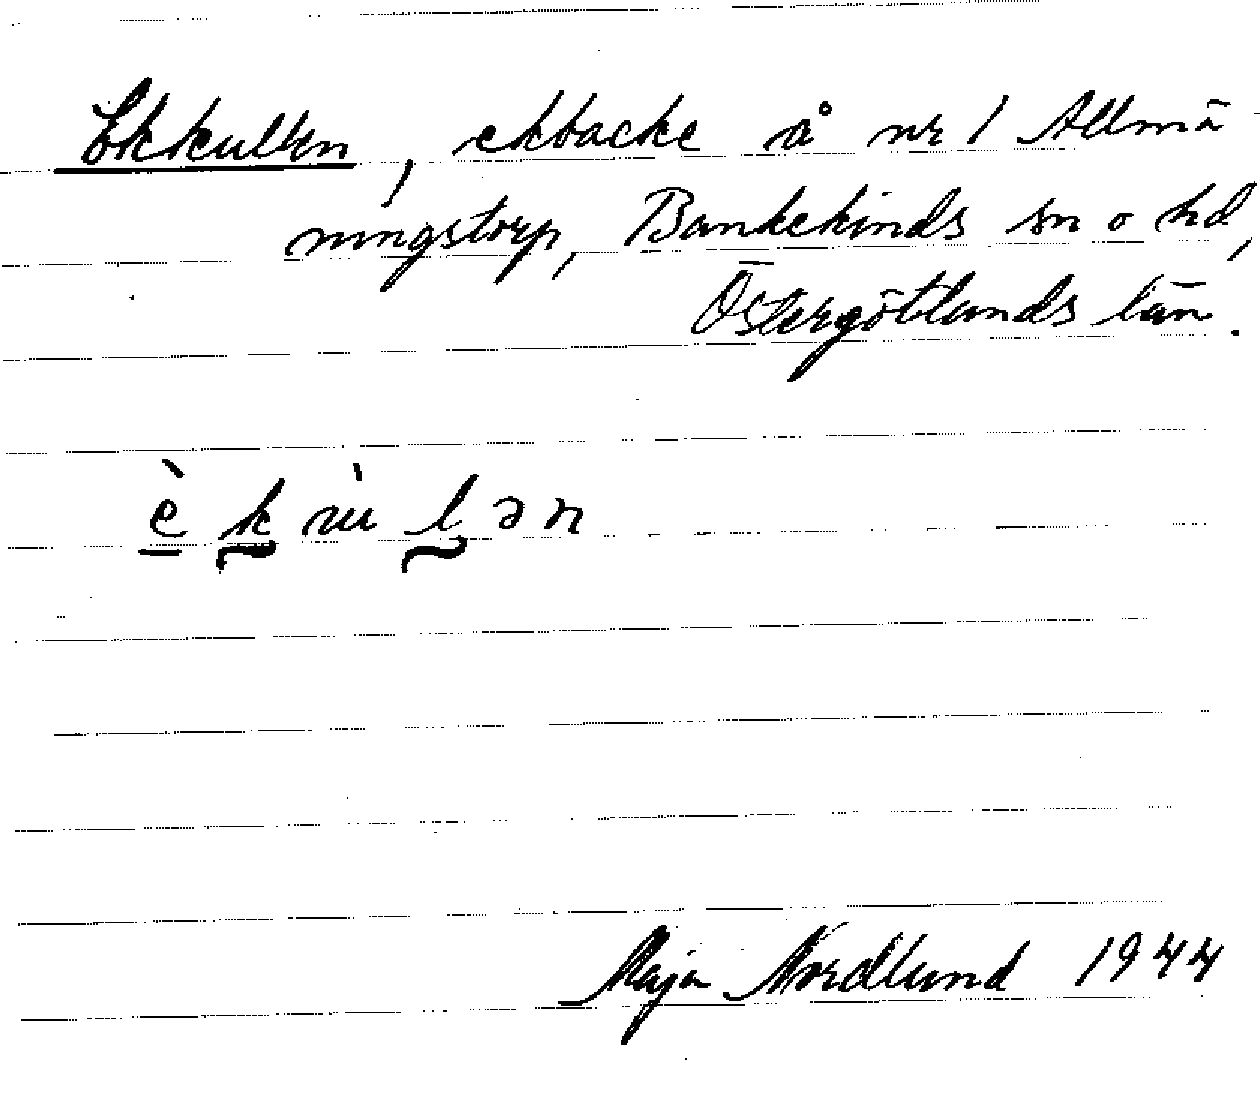 Ekkullen, ekbacke å nr 1 Allmä
ningstorp, Bankekinds sn o hd,
Östergötlands län.
è k ù l ə n
Maja Nordlund 1944